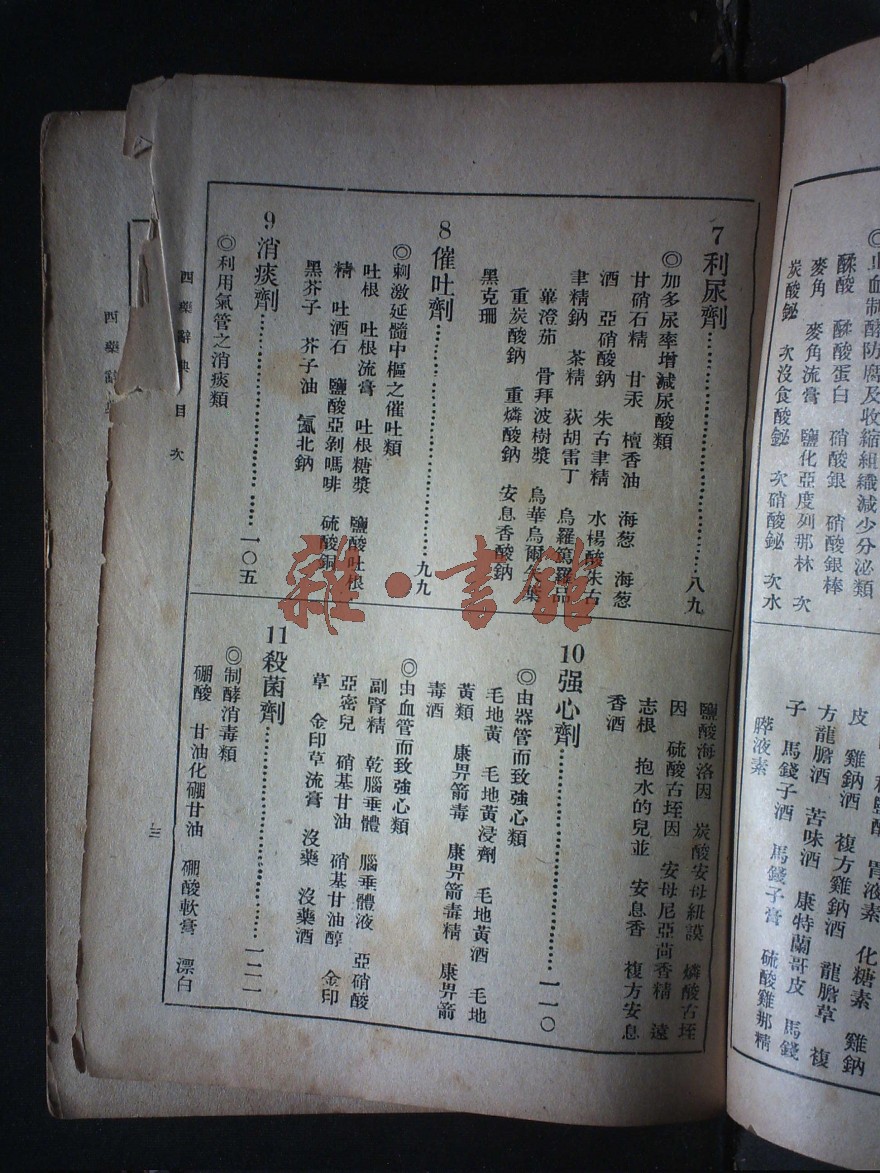 ◎止血制酵防腐及收縮組織減少分泌類
醱酸　醱酸蛋白　硝酸銀　硝酸銀棒
麥角　麥角流膏　鹽化亞度列那林　次
炭酸鉍　次沒食酸鉍　次硝酸鉍　次水
胃液素　化糖素　雞鈉
皮　雞鈉酒　複方雞鈉酒　龍膽草　複
方龍膽酒　苦味酒　康特蘭哥皮　馬錢
子　馬錢子酒　馬錢子膏　硫酸雞那精
膵液素
7 利尿劑……八九
◎加多尿率增減尿酸類
甘硝石精　甘汞　檀香油　海葱　海葱
酒　亞硝酸鈉　朱古聿精　水楊酸朱古
聿精鈉　茶精　荻胡雷丁　烏羅篤羅品
蓽澄茄　骨拜波樹漿　烏華烏爾矢葉
重炭酸鈉　重燐酸鈉　安息香酸鈉
黑克珊
8 催吐劑……九九
◎刺激延髓中樞之催吐類
吐根　吐根流膏　吐根糖漿　鹽酸吐根
精　吐酒石　鹽酸亞剝嗎啡　硫酸銅
黑芥子　芥子油　氯北鈉
9 消痰劑……一〇五
◎利用氣管之消痰類
鹽酸海洛因　炭酸安母紐謨　燐酸古垤
因　硫酸古垤因　安母尼亞茴香精　遠
志根　抱水的兒並　安息香　複方安息
香酒
10 强心劑……一一〇
◎由器管而致強心類
毛地黃　毛地黃浸劑　毛地黃酒　毛地
黃類　康畀箭毒　康畀箭毒精　康畀箭
毒酒
◎由血管而致強心類
副腎精　乾腦垂體　腦垂體液　亞硝酸
亞密兒　硝基甘油　硝基甘油醇　金印
草　金印草流膏　沒藥　沒藥酒
11 殺菌劑……一二一
◎制酵消毒類
硼酸　甘油化硼甘油　硼酸軟膏　漂白
西藥辭典　目次
三
西藥辭
雜·書館